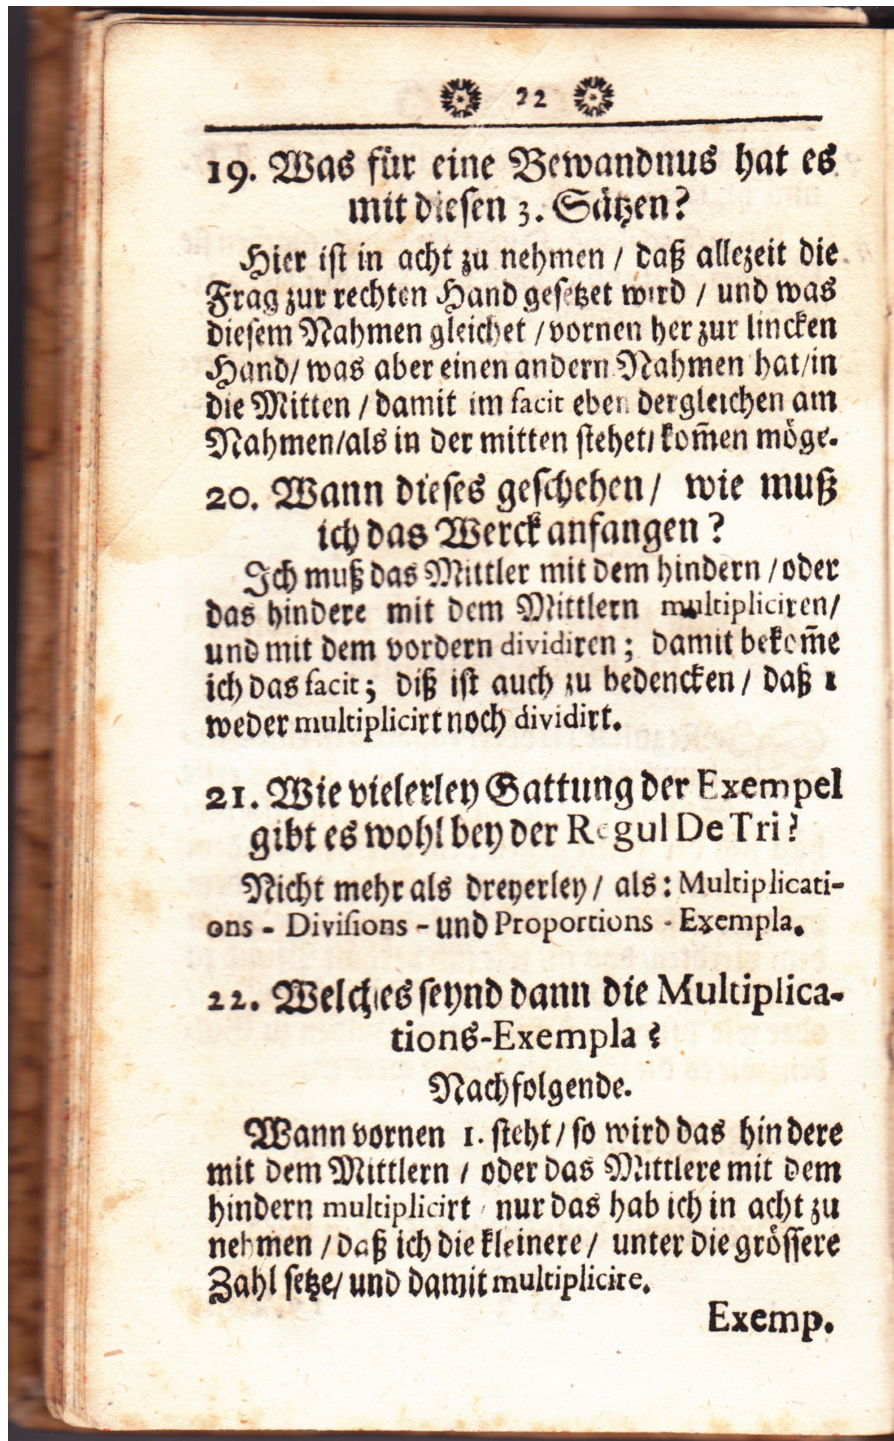 22
19. Was für eine Bewandnus hat es
mit diesen 3. Sätzen?
Hier ist in acht zu nehmen / daß allezeit die
Frag zur rechten Hand gesetzet wird / und was
diesem Nahmen gleichet / vornen her zur lincken
Hand / was aber einen andern Nahmen hat / in
die Mitten / damit im facit eben dergleichen am
Nahmen / als in der mitten stehet / kom̃en möge.
20. Wann dieses geschehen / wie muß
ich das Werck anfangen?
Ich muß das Mittler mit dem hindern / oder
das hindere mit dem Mittlern multipliciren /
und mit dem vordern dividiren; damit bekom̃e
ich das facit; diß ist auch zu bedencken / daß 1
weder multiplicirt noch dividirt.
21. Wie vielerley Gattung der Exempel
gibt es wohl bey der Regul De Tri?
Nicht mehr als dreyerley / als: Multiplicati-
ons - Divisions - und Proportions - Exempla.
22. Welches seynd dann die Multiplica-
tions-Exempla?
Nachfolgende.
Wann vornen 1. steht / so wird das hindere
mit dem Mittlern / oder das Mittlere mit dem
hindern multiplicirt / nur das hab ich in acht zu
nehmen / daß ich die kleinere / unter die grössere
Zahl setze / und damit multiplicire.
Exemp.